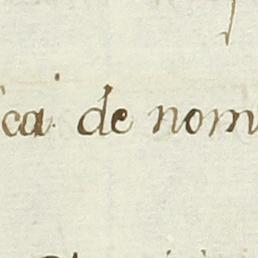 ica de nom